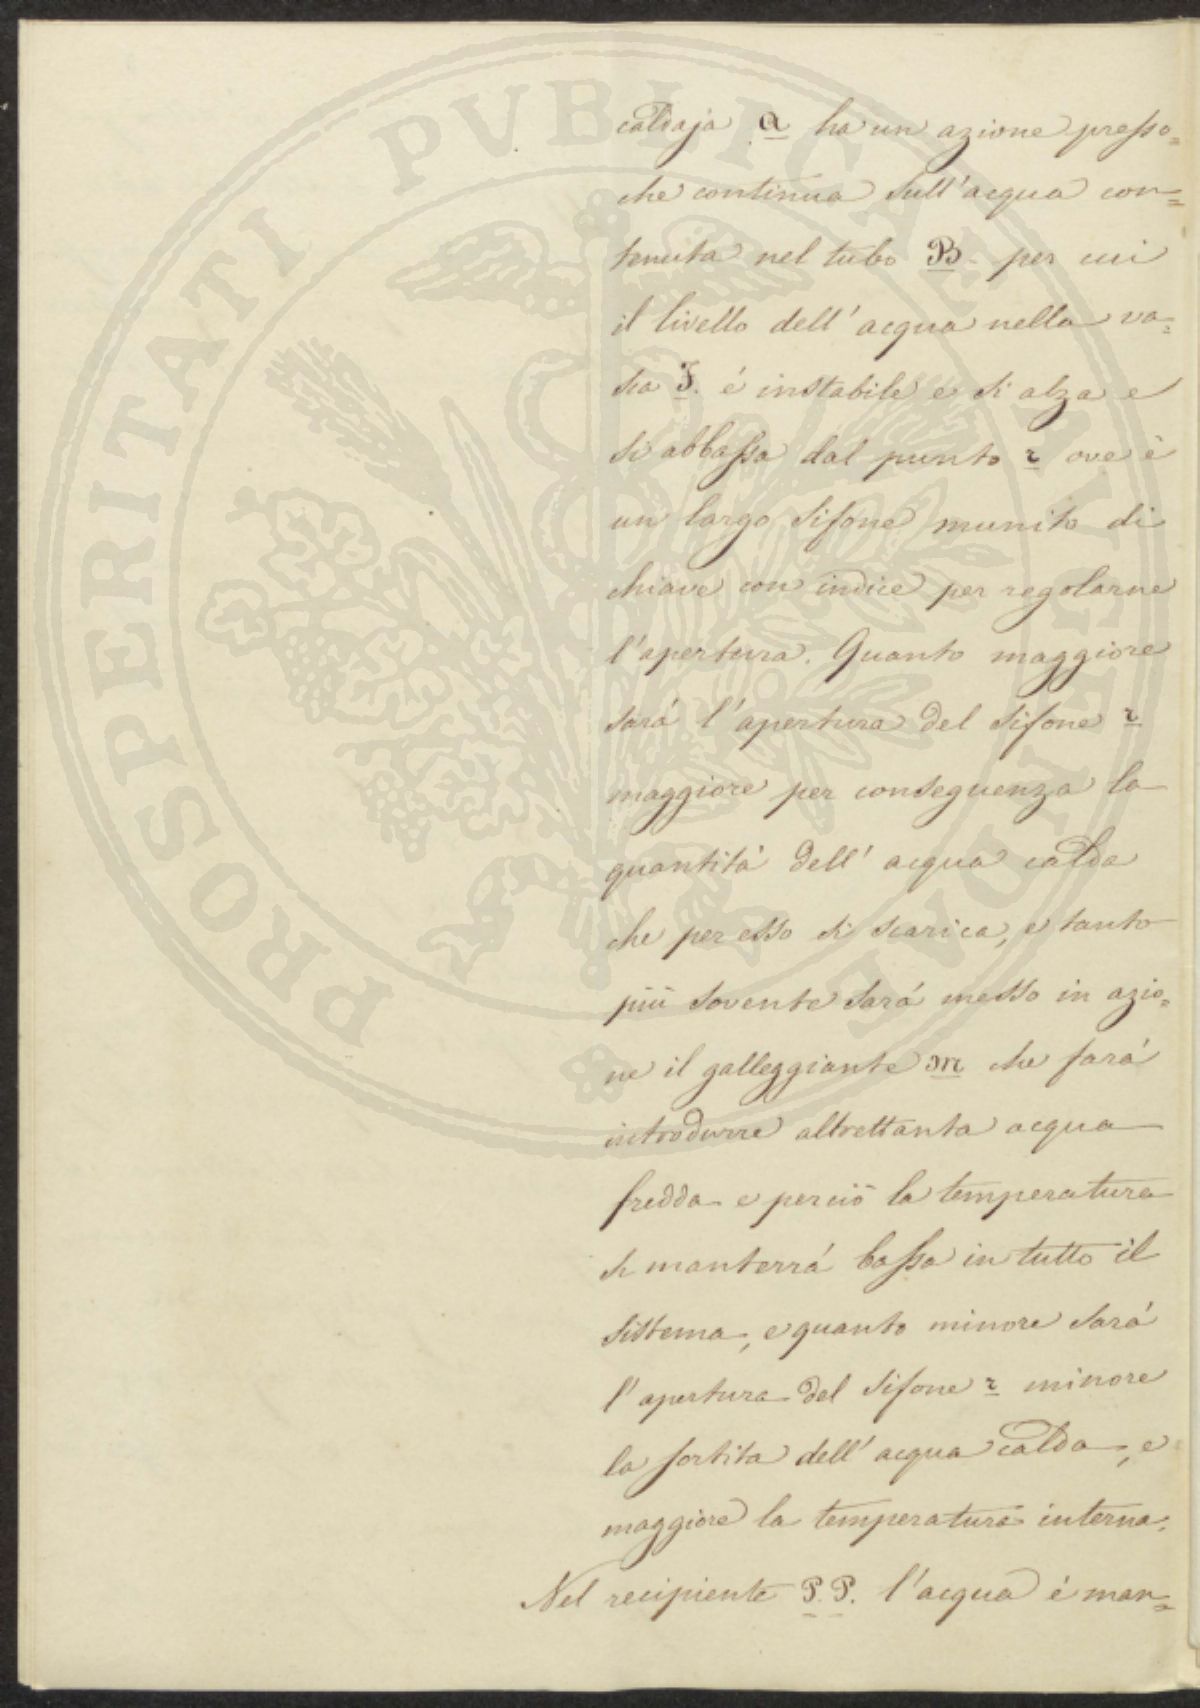 caldaja a ha un azione presso=
che continua sull'acqua con=
tenuta nel tubo B. per cui
il livello dell'acqua nella va=
sca F. é instabile e si alza e
si abbassa dal punto r ove è
un largo sifone munito di
chiave con indice per regolarne
l'apertura. Quanto maggiore
sará l'apertura del sifone r
maggiore per conseguenza la
quantità dell'acqua calda
che per esso si scarica, e tanto
più sovente sará messo in azio=
ne il galleggiante m che fará
introdurre altrettanta acqua
fredda e perciò la temperatura
si manterrá bassa in tutto il
sistema, e quanto minore sará
l'apertura del sifone r minore
la sortita dell'acqua calda, e
maggiore la temperatura interna.
Nel recipiente P. P. l'acqua é man=
PROSPERITATI PVBLICAE AVGENDAE